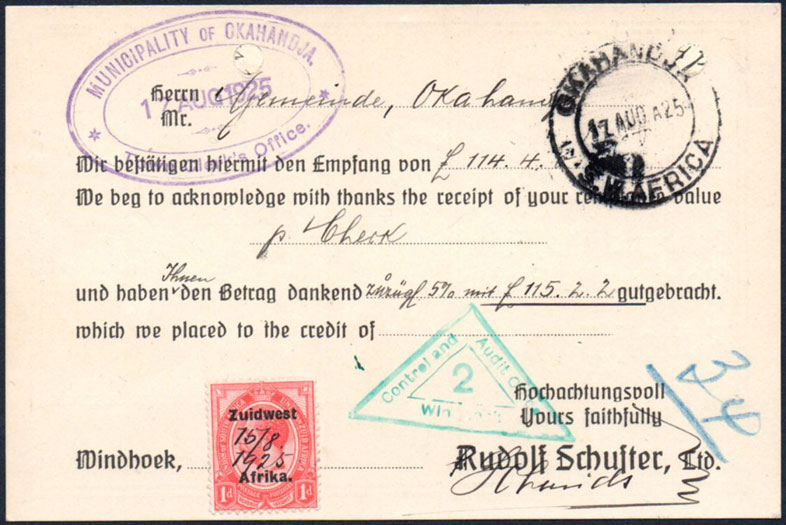 MUNICIPALITY OF OKAHANDJA.
17 AUG 1925
Town Clerk's Office.
OKAHANDJA
17 AUG A25
S.W. AFRICA
Herrn
Mr. Gemeinde, Okahand
Wir bestätigen hiermit den Empfang von £ 114.4.
We beg to acknowledge with thanks the receipt of your remittance value
p Check
Ihnen
und haben den Betrag dankend zuzügl 5% mit £ 115.2.2 gutgebracht.
which we placed to the credit of
Control and Audit Office
2
Hochachtungsvoll
Yours faithfully
34
Zuidwest
15/8.
1925
Afrika.
1d 1d
Windhoek,
Rudolf Schuster, Ltd.